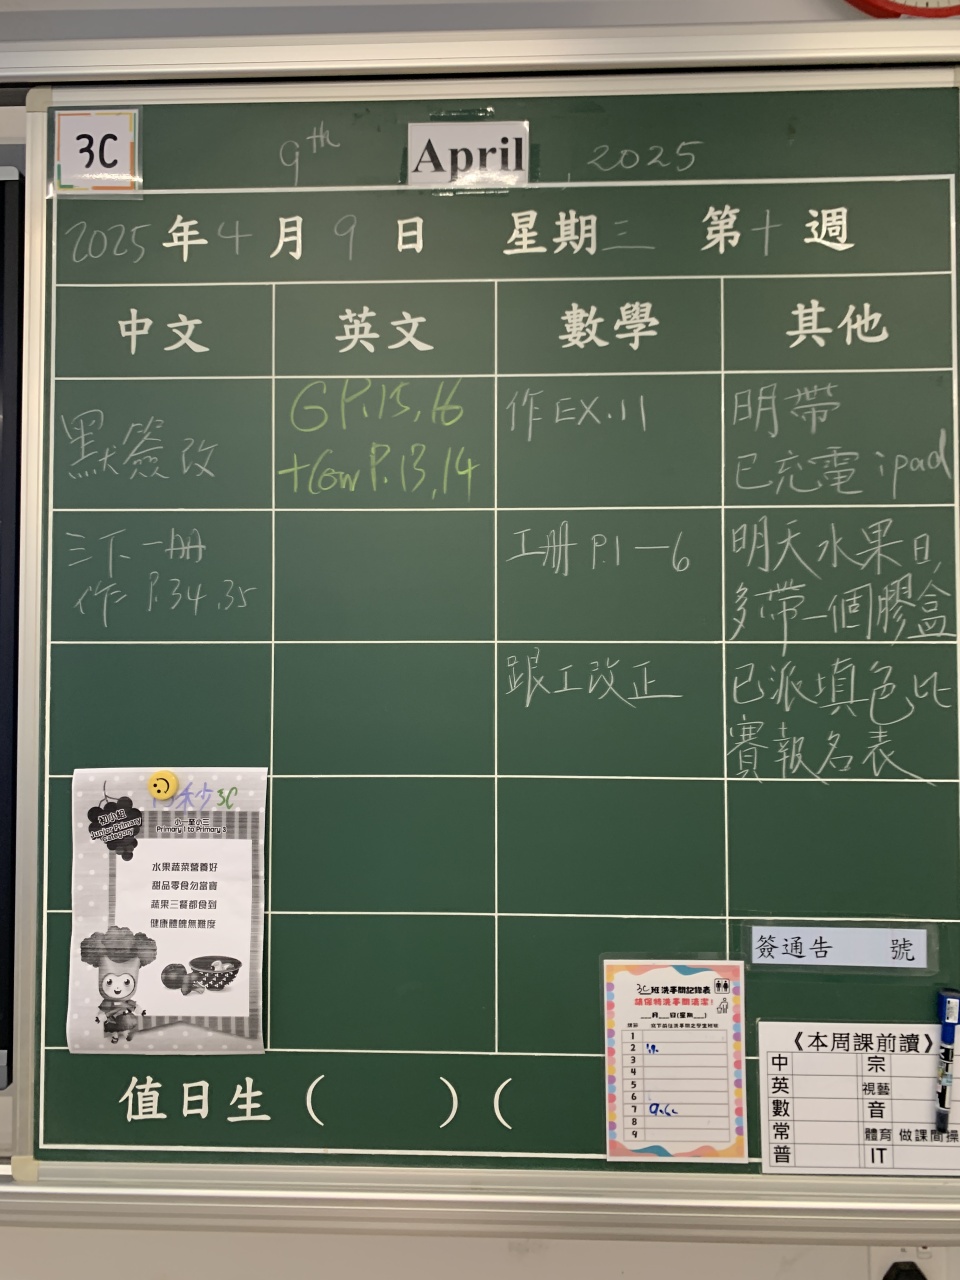 3C
9th April, 2025
2025年4月9日 星期三 第十週
中文 英文 數學 其他
默簽改
三下一冊
作 P.34.35
G P.15,16
+Gow P.13,14
作EX.11
工冊 P.1—6
跟工改正
明帶
已充電ipad
明天水果日,
多帶一個膠盒
已派填色比
賽報名表
秒 3C
初小組
Junior Primary
Category
小一至小三
Primary 1 to Primary 3
水果蔬菜營養好
甜品零食勿當寶
蔬果三餐都食到
健康體魄無難度
簽通告 號
3C班洗手間記錄表
請保持洗手間清潔!
___月___日(星期___)
1
2
3
4
5
6
7
8
9
《本周課前讀》
中 宗
英 視藝
數 音
常 體育 做課間操
普 IT
值日生( )(